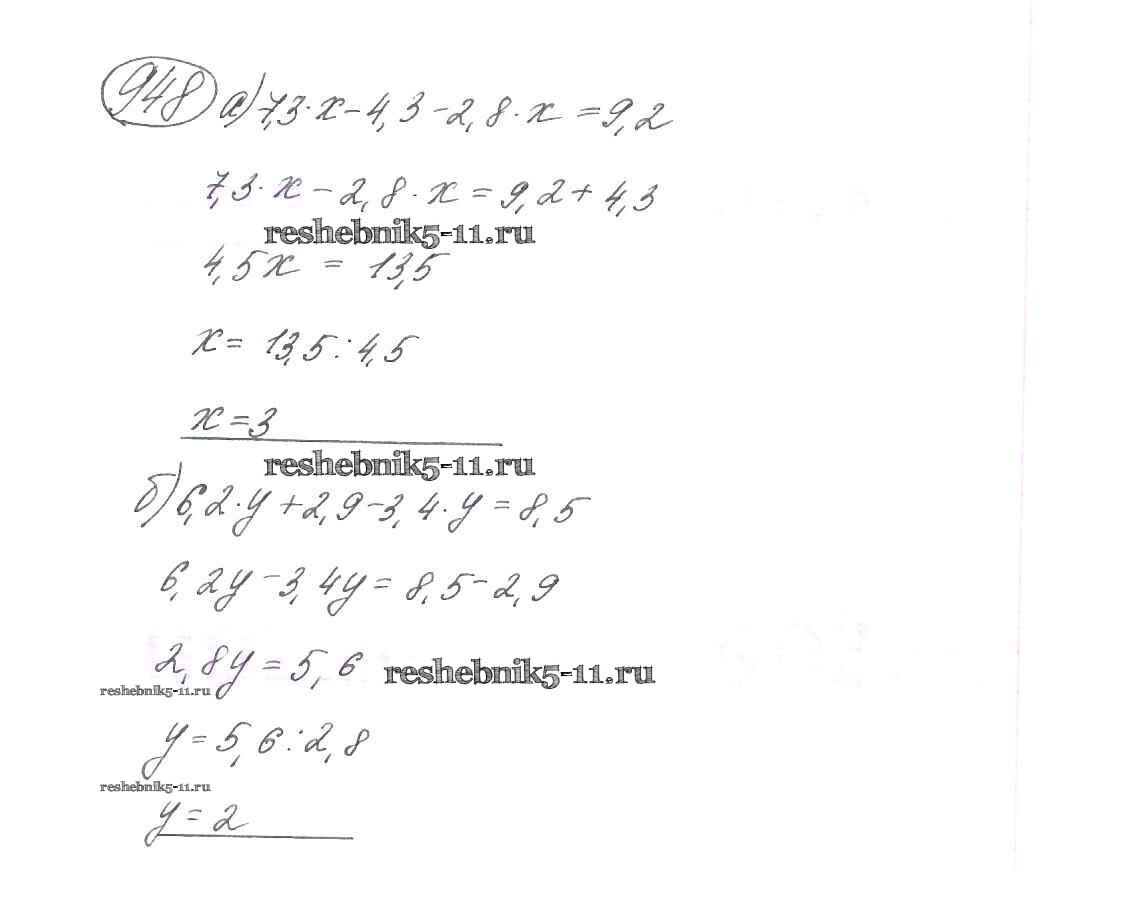 948 а) 7,3·x-4,3-2,8·x=9,2
7,3·x-2,8·x=9,2+4,3
reshebnik5-11.ru
4,5x = 13,5
x= 13,5:4,5
x=3
reshebnik5-11.ru
б) 6,2·y+2,9-3,4·y=8,5
6,2y-3,4y=8,5-2,9
2,8y=5,6 reshebnik5-11.ru
reshebnik5-11.ru
y=5,6:2,8
reshebnik5-11.ru
y=2